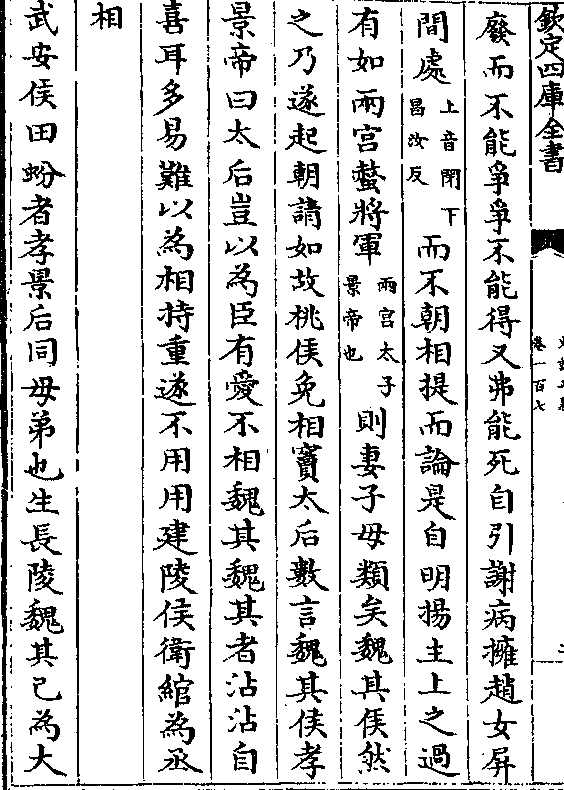 欽定四庫全書
卷一百七
廢而不能爭爭不能得又弗能死自引謝病擁趙女屏
間處上音閑下昌汝反而不朝相提而論是自明揚主上之過
有如兩宮螫將軍兩宮太子景帝也則妻子毋類矣魏其侯然
之乃遂起朝請如故桃侯免相竇太后數言魏其侯孝
景帝曰太后豈以為臣有愛不相魏其魏其者沾沾自
喜耳多易難以為相持重遂不用用建陵侯衛綰為丞
相
武安侯田蚡者孝景后同母弟也生長陵魏其已為大